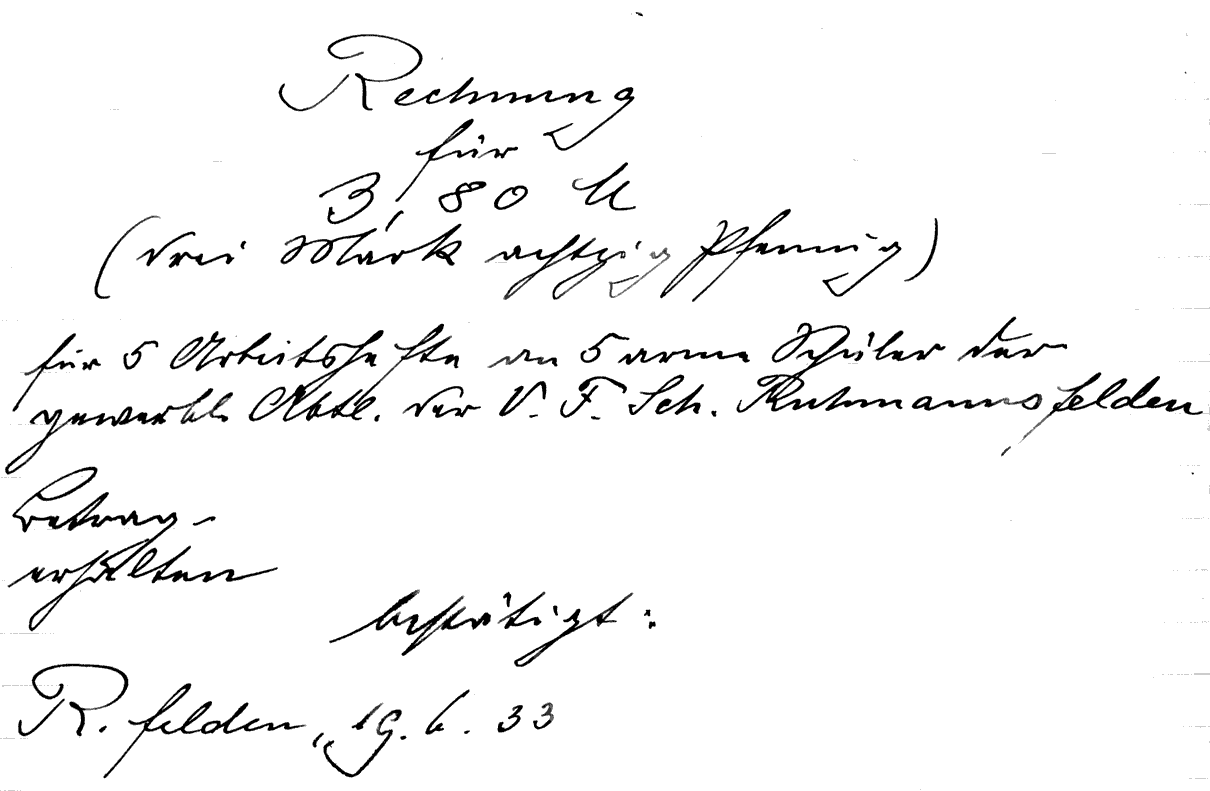 Rechnung
für
3,80 M
(drei Mark achtzig Pfennig)
für 5 Arbeitshefte an 5 arme Schüler der
gewerbl. Abtl. der V. F. Sch. Ruhmannsfelden
Betrag
erhalten
bestätigt:
R. felden, 19. 6. 33